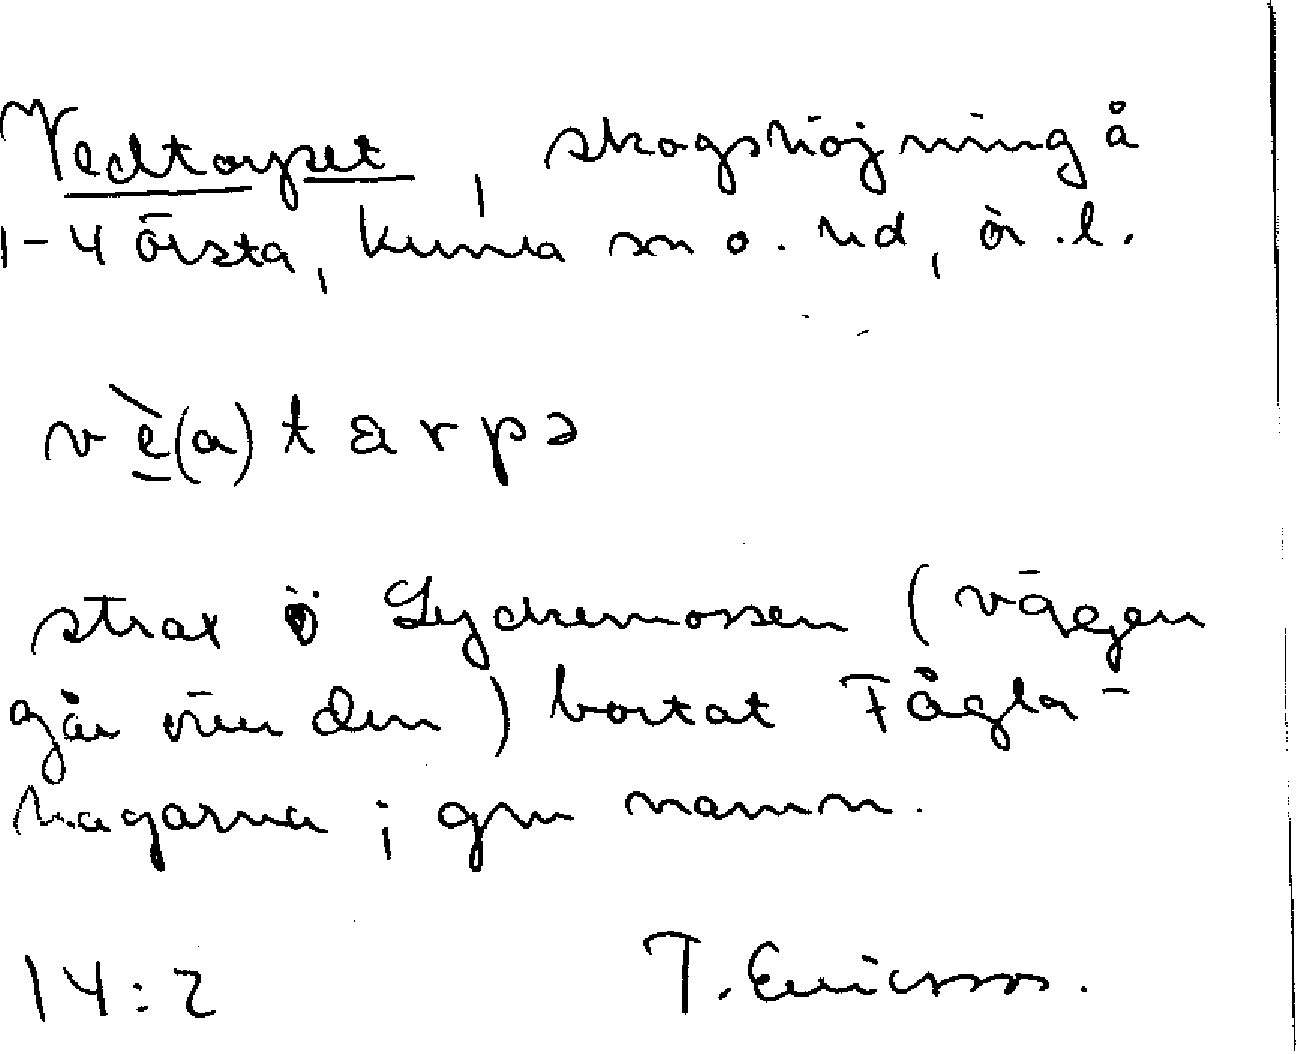 Vedtorpet, skogshöjning å
1-4 Örsta, Kumla sn o. hd, Ör. l.
vè̱(a)tarpə
strax ö Lyckemossen (vägen
går över den) bortåt Fågla-
hagarna; gm namn.
14:2 T. Ericsson.